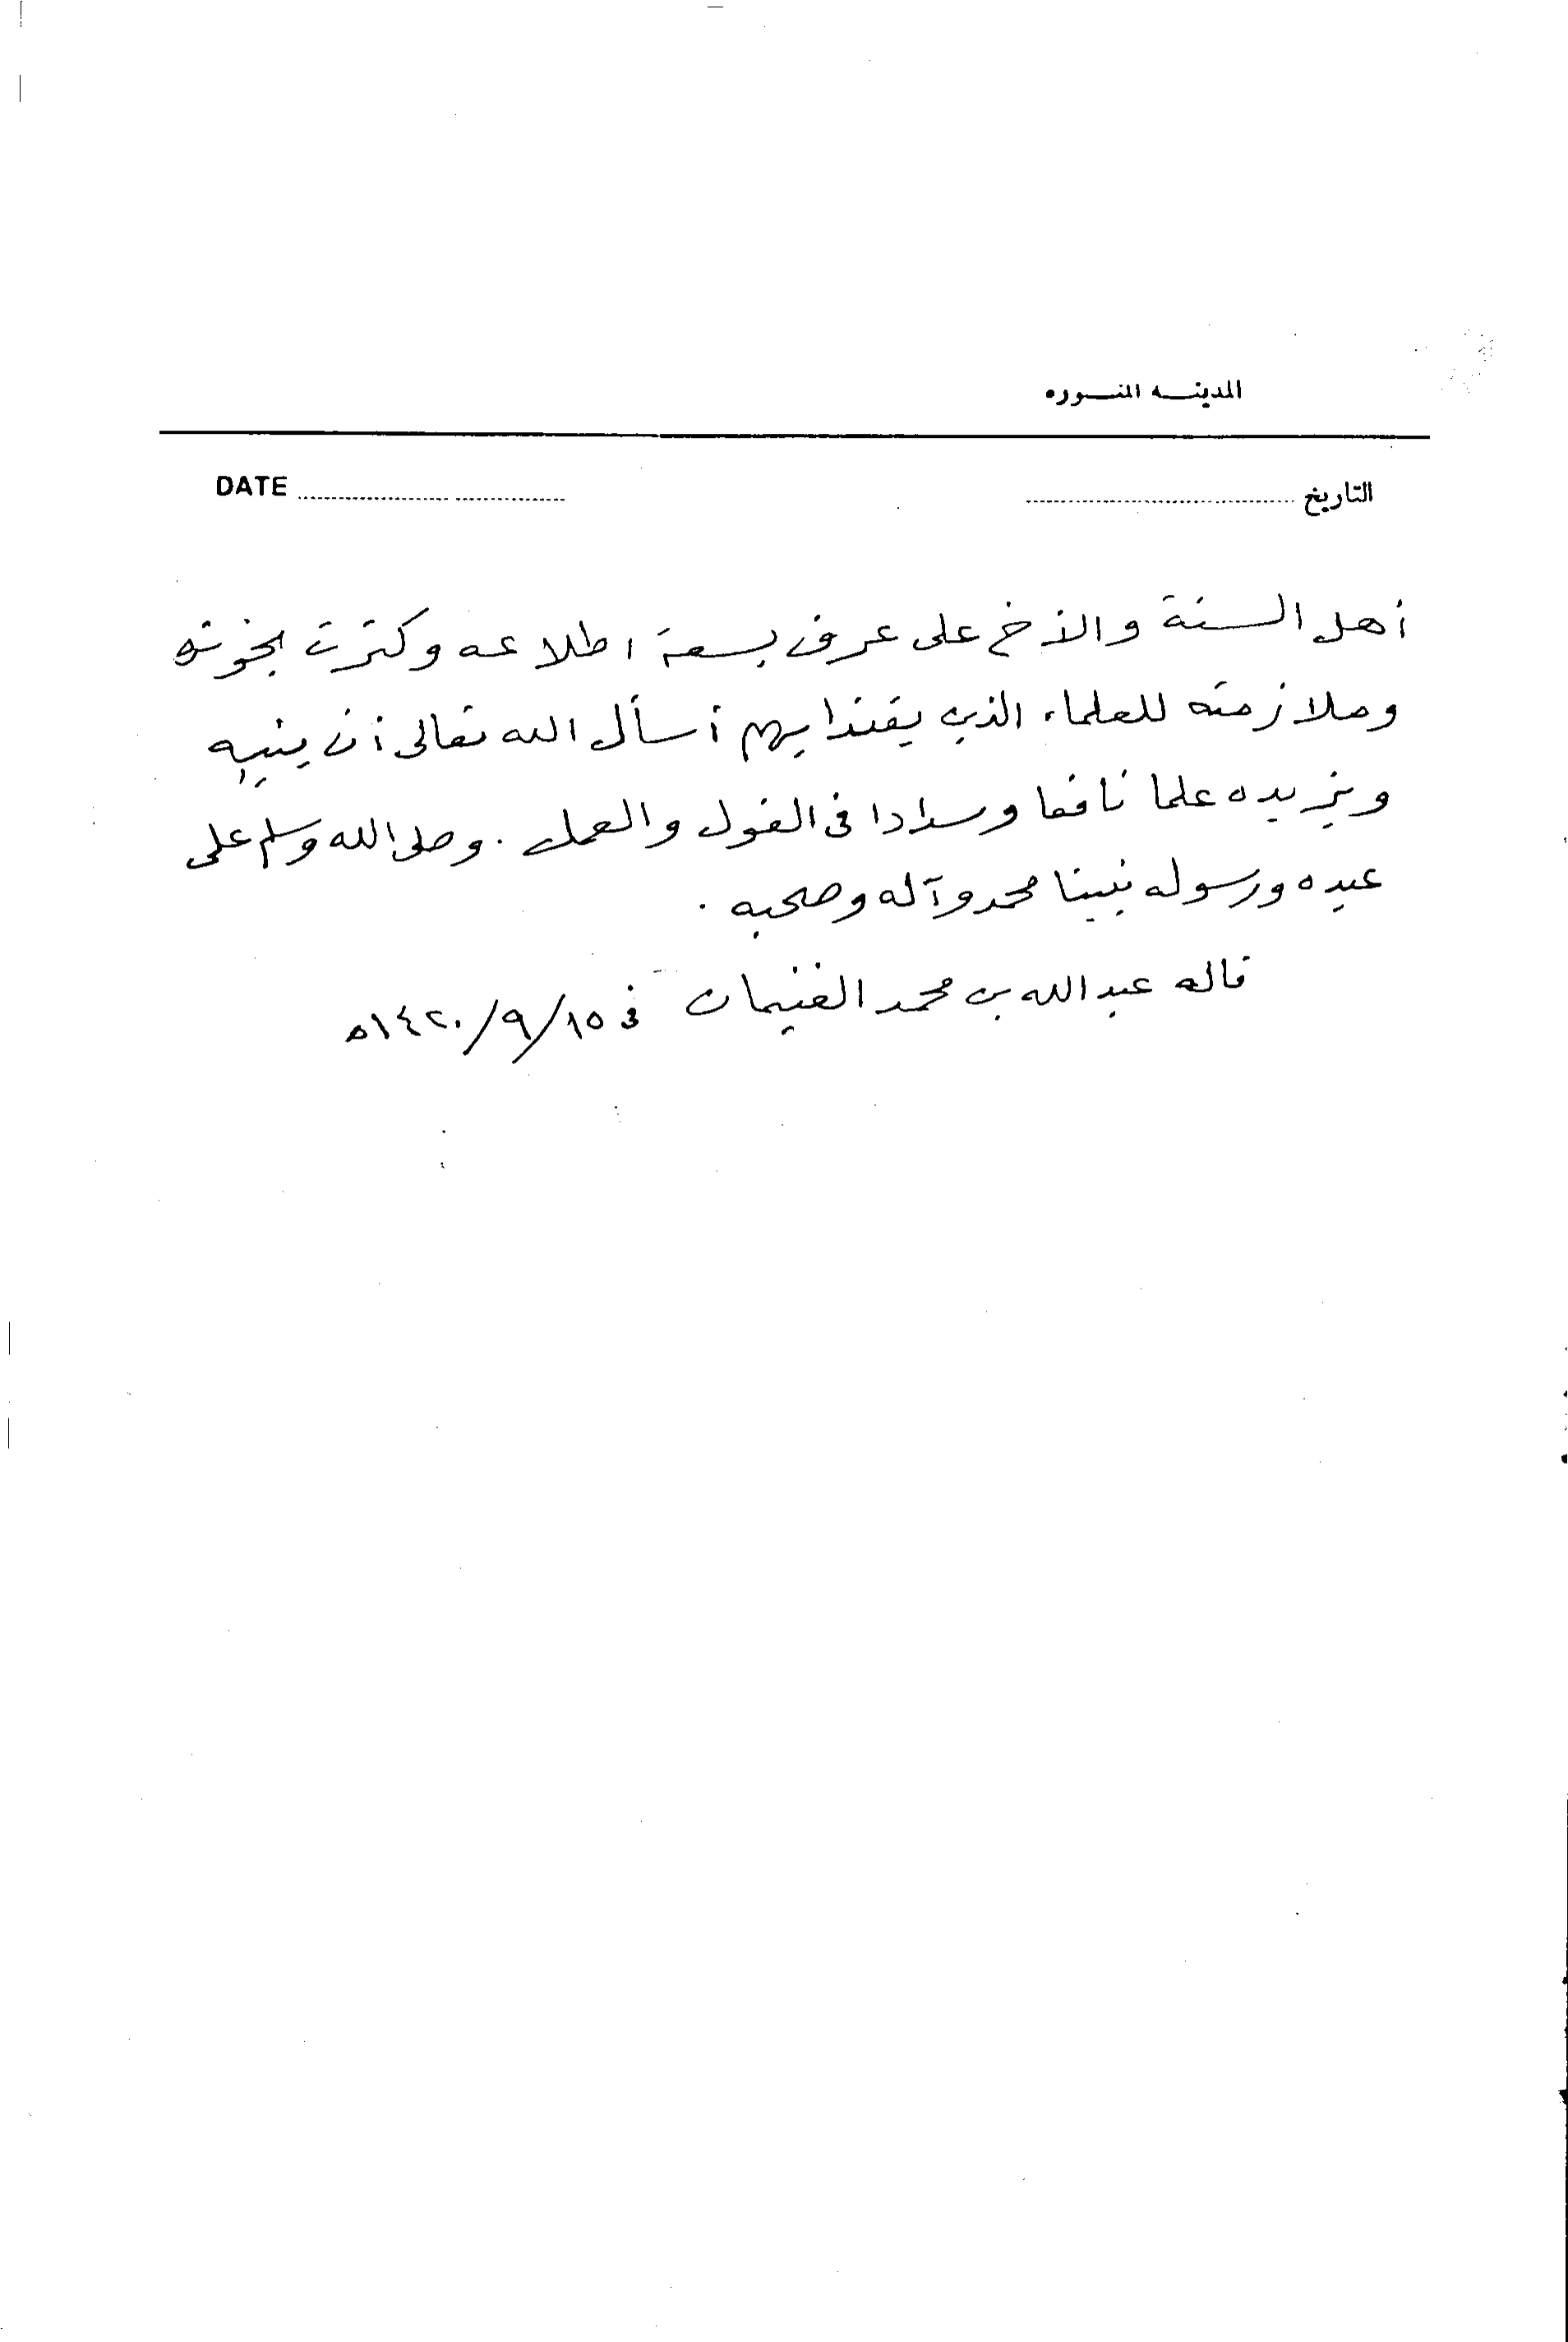 المدينــه المنــوره
التاريخ ........................ DATE ........................
أهل السنة والأخ على عرف بسعة اطلاعه وكثرت بحوثه
وملازمته للعلماء الذين يقتدا بهم أسأل الله تعالى أن يثيبه
ويزيده علما نافعا وسدادا فى القول والعمل . وصلى الله وسلم على
عبده ورسوله نبينا محمد وآله وصحبه .
قاله عبد الله بن محمد الغنيمان فى ١٥/٩/١٤٢٠ه